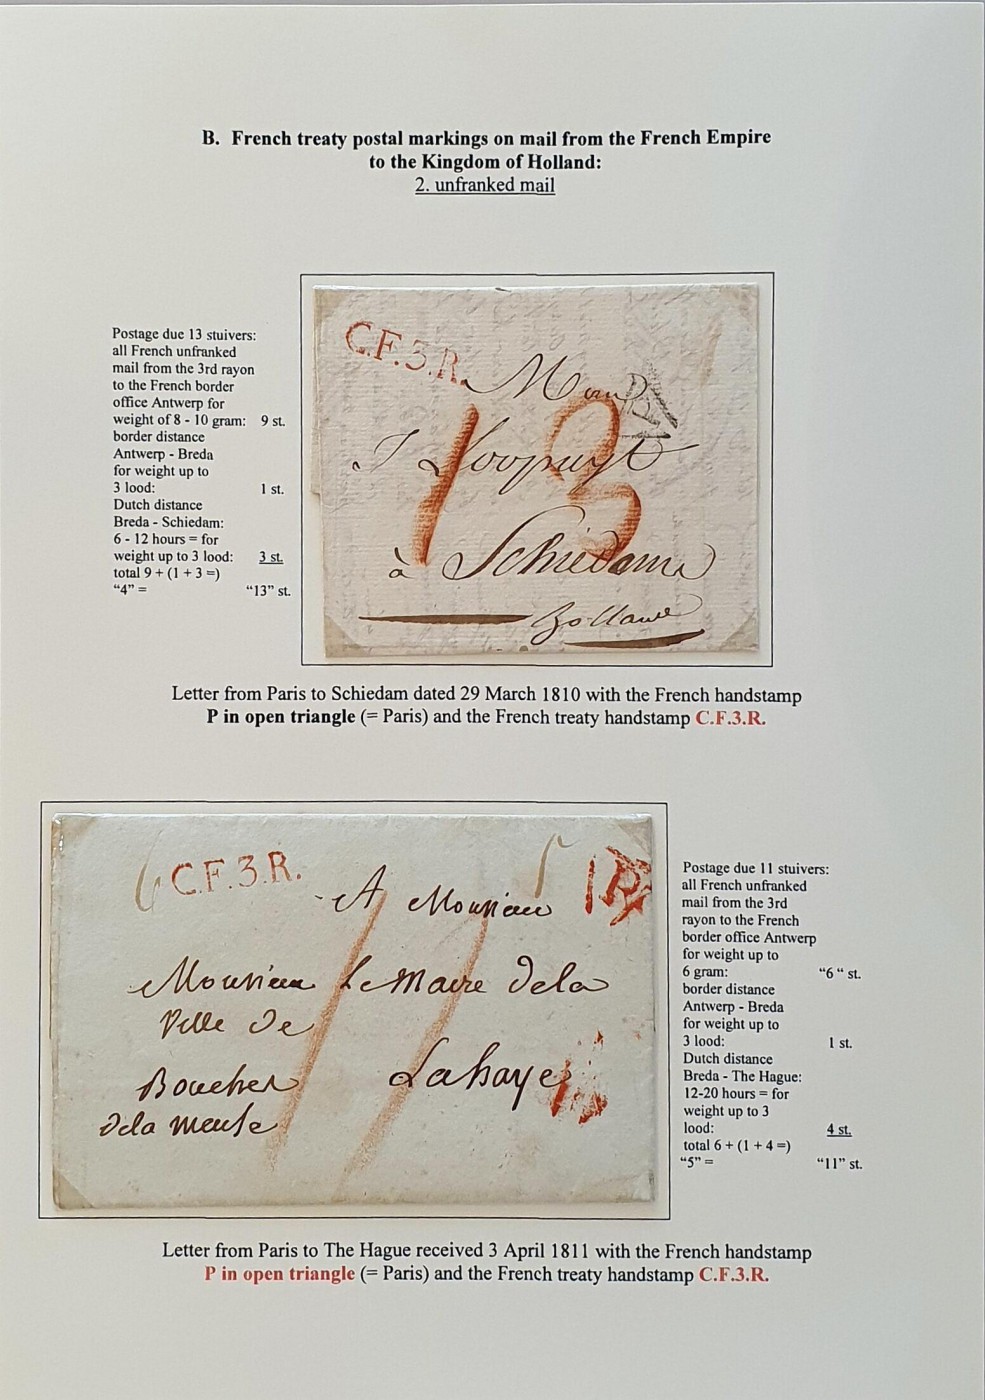 B. French treaty postal markings on mail from the French Empire
to the Kingdom of Holland:
2. unfranked mail
Postage due 13 stuivers:
all French unfranked
mail from the 3rd rayon
to the French border
office Antwerp for
weight of 8 - 10 gram: 9 st.
border distance
Antwerp - Breda
for weight up to
3 lood: 1 st.
Dutch distance
Breda - Schiedam:
6 - 12 hours = for
weight up to 3 lood: 3 st.
total 9 + (1 + 3 =)
“4” = “13” st.
C.F.3.R.
P
13
à Schiedam
Letter from Paris to Schiedam dated 29 March 1810 with the French handstamp
P in open triangle (= Paris) and the French treaty handstamp C.F.3.R.
6 C.F.3.R.
5
P
A Monsieur
Monsieur Le Maire de la
Ville de
Lahaye
Bouches
de la meuse
11
Postage due 11 stuivers:
all French unfranked
mail from the 3rd
rayon to the French
border office Antwerp
for weight up to
6 gram: “6 “ st.
border distance
Antwerp - Breda
for weight up to
3 lood: 1 st.
Dutch distance
Breda - The Hague:
12-20 hours = for
weight up to 3
lood: 4 st.
total 6 + (1 + 4 =)
“5” = “11” st.
Letter from Paris to The Hague received 3 April 1811 with the French handstamp
P in open triangle (= Paris) and the French treaty handstamp C.F.3.R.